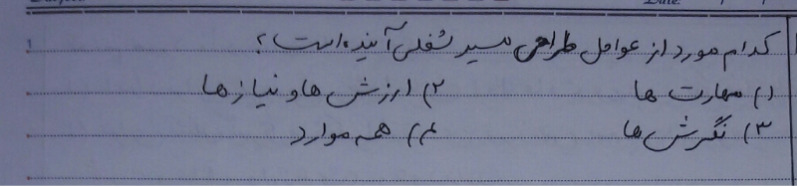 کدام مورد از عوامل طراحی مسیر شغلی آینده است؟
۱) مهارت ها ۲) ارزش ها و نیازها
۳) نگرش ها ۴) همه موارد